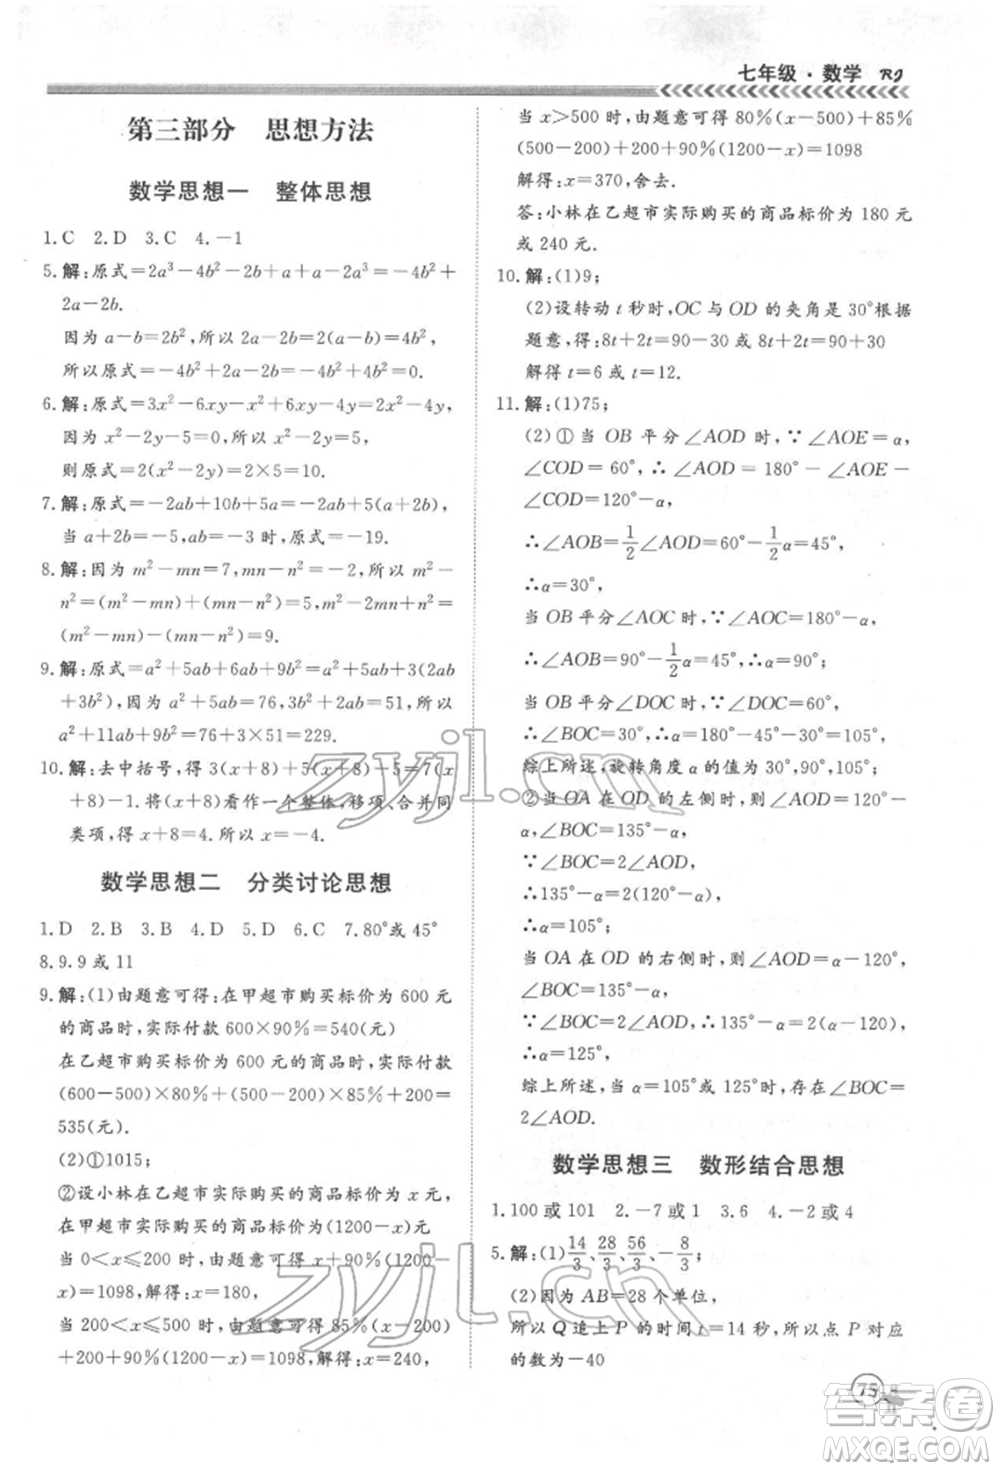 七年级·数学 RJ
第三部分 思想方法
数学思想一 整体思想
1.C 2.D 3.C 4.-1
5.解:原式=2a³-4b²-2b²+a+a-2a³=-4b²+
2a-2b.
因为a-b=2b²,所以2a-2b=2(a-b)=4b²,
所以原式=-4b²+2a-2b=-4b²+4b²=0.
6.解:原式=3x²-6xy-x²+6xy-4y=2x²-4y,
因为x²-2y-5=0,所以x²-2y=5,
则原式=2(x²-2y)=2×5=10.
7.解:原式=-2ab+10+5a=-2ab+5(a+2),
当a+2=-5,ab=-3时,原式=-19.
8.解:因为m²-mn=7,mn-n²=-2,所以m²-
n²=(m²-mn)+(mn-n²)=7-2=5;
(m²-mn)-(mn-n²)=7-(-2)=9.
9.解:原式=a²+5ab+6ab+9b²=a²+5ab+3(2ab
+3b²),因为a²+5ab=76,3b²+2ab=51,所以
a²+11ab+9b²=76+3×51=229.
10.解:去中括号,得3(x+8)+5(x+8)-5=7(x
+8)-1.将(x+8)看作一个整体,移项、合并同
类项,得x+8=4.所以x=-4.
数学思想二 分类讨论思想
1.D 2.B 3.B 4.D 5.D 6.C 7.80°或45°
8.9.9或11
9.解:(1)由题意可得:在甲超市购买标价为600元
的商品时,实际付款600×90%=540(元)
在乙超市购买标价为600元的商品时,实际付款
(600-500)×80%+(500-200)×85%+200=
535(元).
(2)①1015;
②设小林在乙超市实际购买的商品标价为x元,
在甲超市实际购买的商品标价为(1200-x)元
当0<x≤200时,由题意可得x+90%(1200-
x)=1098,解得:x=180,
当200<x≤500时,由题意可得85%(x-200)
+200+90%(1200-x)=1098,解得:x=240,
当x>500时,由题意可得80%(x-500)+85%
(500-200)+200+90%(1200-x)=1098
解得:x=370,舍去.
答:小林在乙超市实际购买的商品标价为180元
或240元.
10.解:(1)9;
(2)设转动t秒时,OC与OD的夹角是30°根据
题意,所以:8t+2t=90-30或8t+2t=90+30
解得t=6或t=12.
11.解:(1)75;
(2)①当OB平分∠AOD时,∵∠AOE=α,
∠COD=60°,∴∠AOD=180°-∠AOE-
∠COD=120°-α,
∴∠AOB=1/2∠AOD=60°-1/2α=45°,
∴α=30°,
当OB平分∠AOC时,∵∠AOC=180°-α,
∴∠AOB=90°-1/2α=45°,∴α=90°;
当OB平分∠DOC时,∵∠DOC=60°,
∴∠BOC=30°,∴α=180°-45°-30°=105°,
综上所述,旋转角度α的值为30°,90°,105°;
②当OA在OD的左侧时,则∠AOD=120°-
α,∠BOC=135°-α,
∵∠BOC=2∠AOD,
∴135°-α=2(120°-α),
∴α=105°;
当OA在OD的右侧时,则∠AOD=α-120°,
∠BOC=135°-α,
∵∠BOC=2∠AOD,∴135°-α=2(α-120°),
∴α=125°,
综上所述,当α=105°或125°时,∠BOC=
2∠AOD.
数学思想三 数形结合思想
1.100或101 2.-7或1 3.6 4.-2或4
5.解:(1)14/3、28/3、56/3、-8/3;
(2)因为AB=28个单位,
所以Q追上P的时间t=14秒,所以点P对应
的数为-40
75
zyjl.cn
zyjl.cn
答案卷
MXQE.COM